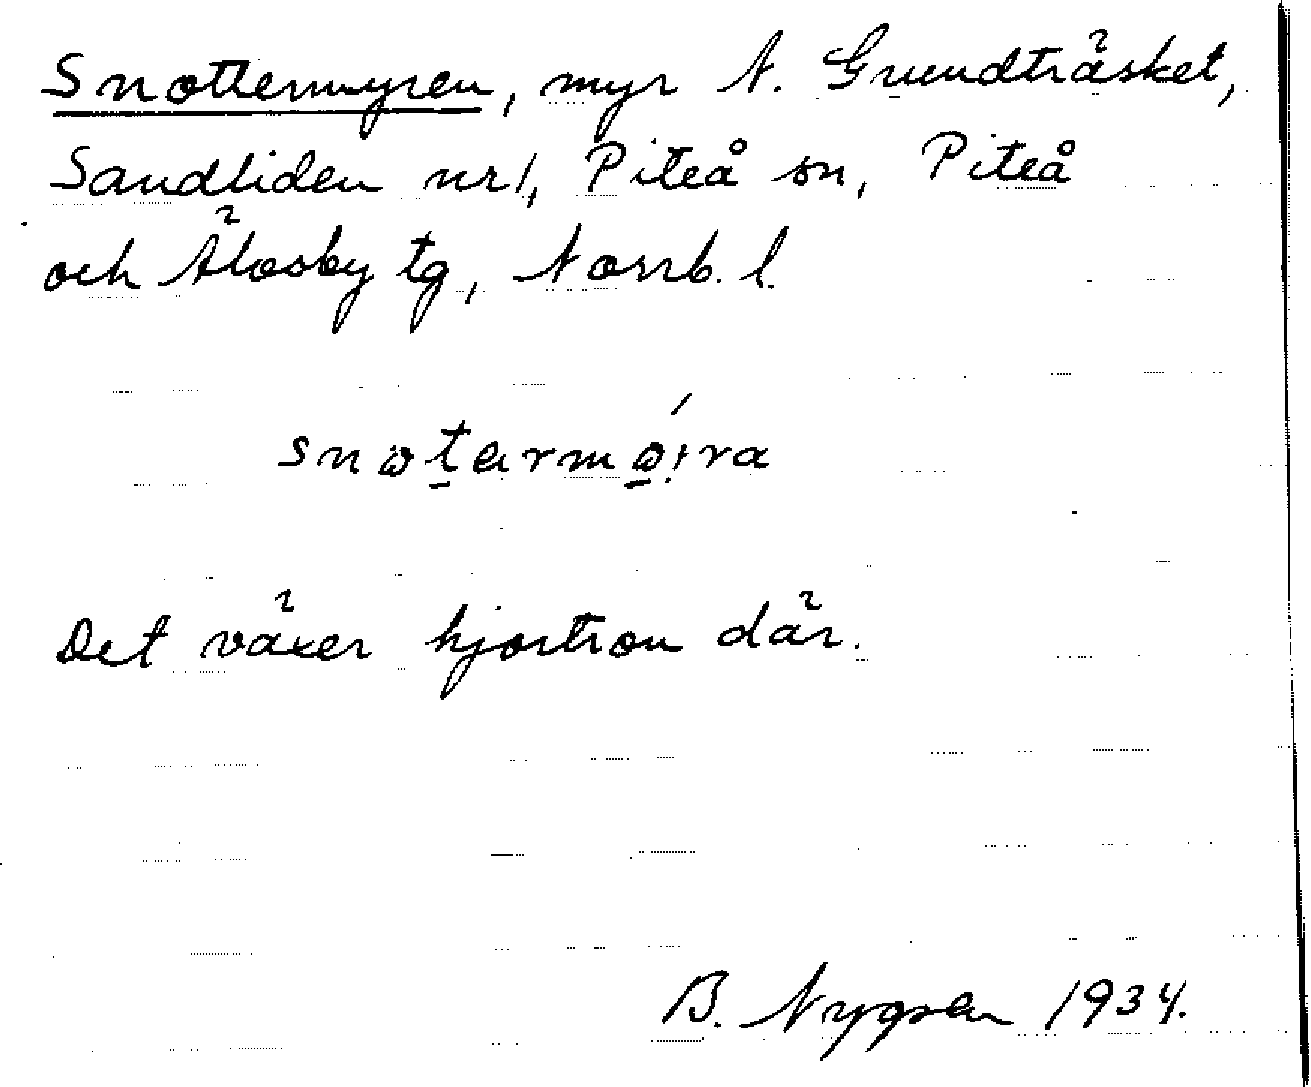 Snottermyren, myr N. Grundträsket,
Sandliden nr 1, Piteå sn, Piteå
och Älvsby tg, Norrb. l.
Det växer hjortron där.
B. Nygren 1934.